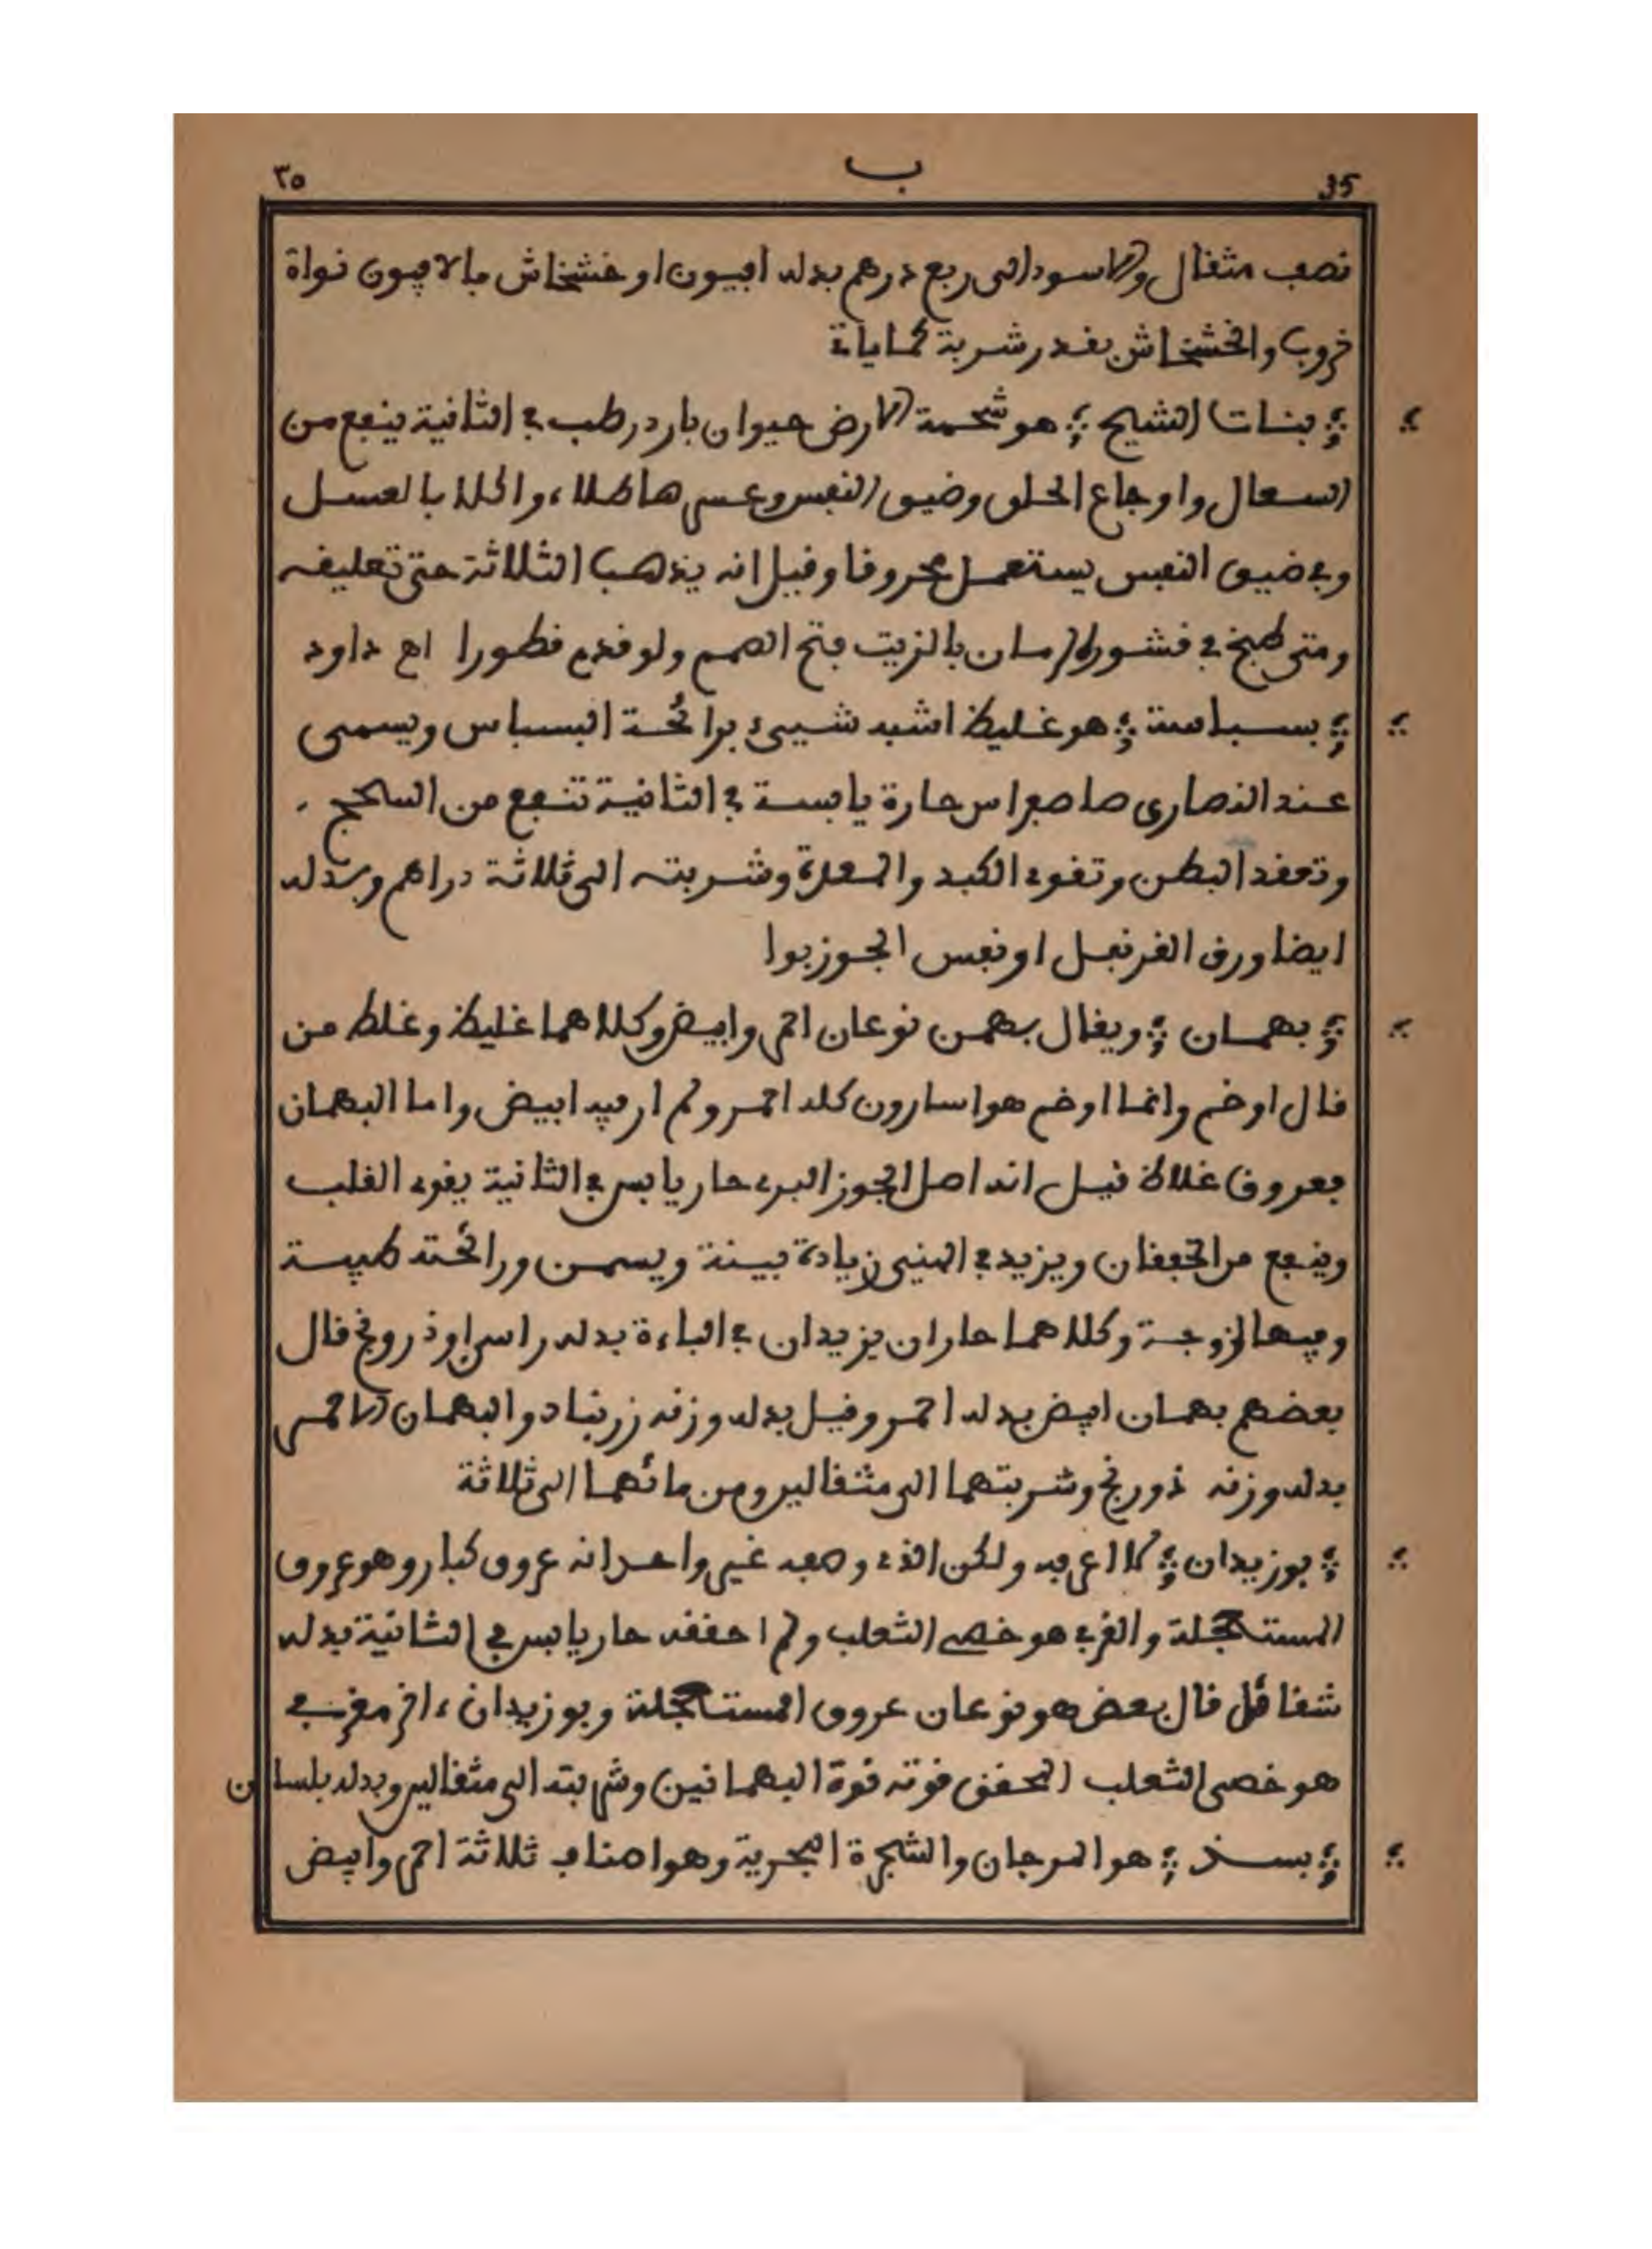 35 ب ٣٥
نصف مثقال والاسود الى ربع درهم بدله افيون او خشخاش فالافيون نواة
خروب والخشخاش بقدر شربة كما ياتي
بنات الشيح هو شحمة الارض حيوان بارد رطب في الثانية ينفع من
السعال واوجاع الحلق وضيق النفس وعسر طلاء واكلا بالعسل
وفي ضيق النفس يستعمل محروقا وقيل انه يذهب الثلاثة حتى تعليقه
ومتى طبخ في قشور الرمان بالزيت فتح الصمم ولو قدم قطورا اهـ داود
بسباسة هو غليظ اشبه شيئ برائحة البسباس ويسمى
عند النصارى حارة يابسة في الثانية تنفع من السحج
وتعقد البطن وتقوي الكبد والمعدة وشربته الى ثلاثة دراهم وبدله
ايضا ورق القرنفل او نفس الجوز بوا
بهمان ويقال بهمن نوعان احمر وابيض وكلاهما غليظ وغلط من
قال اوخم وانما اوخم هو اسارون كله احمر ولم ار فيه ابيض واما البهمان
فعروق غلاظ قيل انه اصل الجوز البري حار يابس في الثانية يقوي القلب
وينفع من الخفقان ويزيد في المني زيادة بينة ويسمن ورائحته طيبة
وفيها لزوجة وكلاهما حاران يزيدان في الباءة بدله راسن او ذرونج قال
بعضهم بهمان ابيض بدله احمر وقيل بدله وزنه زرنباد والبهمان الاحمر
بدله وزنه ذورنج وشربتهما الى مثقالين ومن مائهما الى ثلاثة
بوزيدان لا اعرفه ولكن الذي وصفه غير واحد انه عروق كبار وهو عروق
المستعجلة والغربي هو خصي الثعلب ولم احققه حار يابس في الثانية بدله
شقاقل قال بعض هو نوعان عروق المستعجلة وبوزيدان ءاخر مغربي
هو خصى الثعلب المحقق قوته قوة البهمانين وشربته الى مثقالين وبدله بلسان
بسذ هو المرجان والشجرة البحرية وهو اصناف ثلاثة احمر وابيض